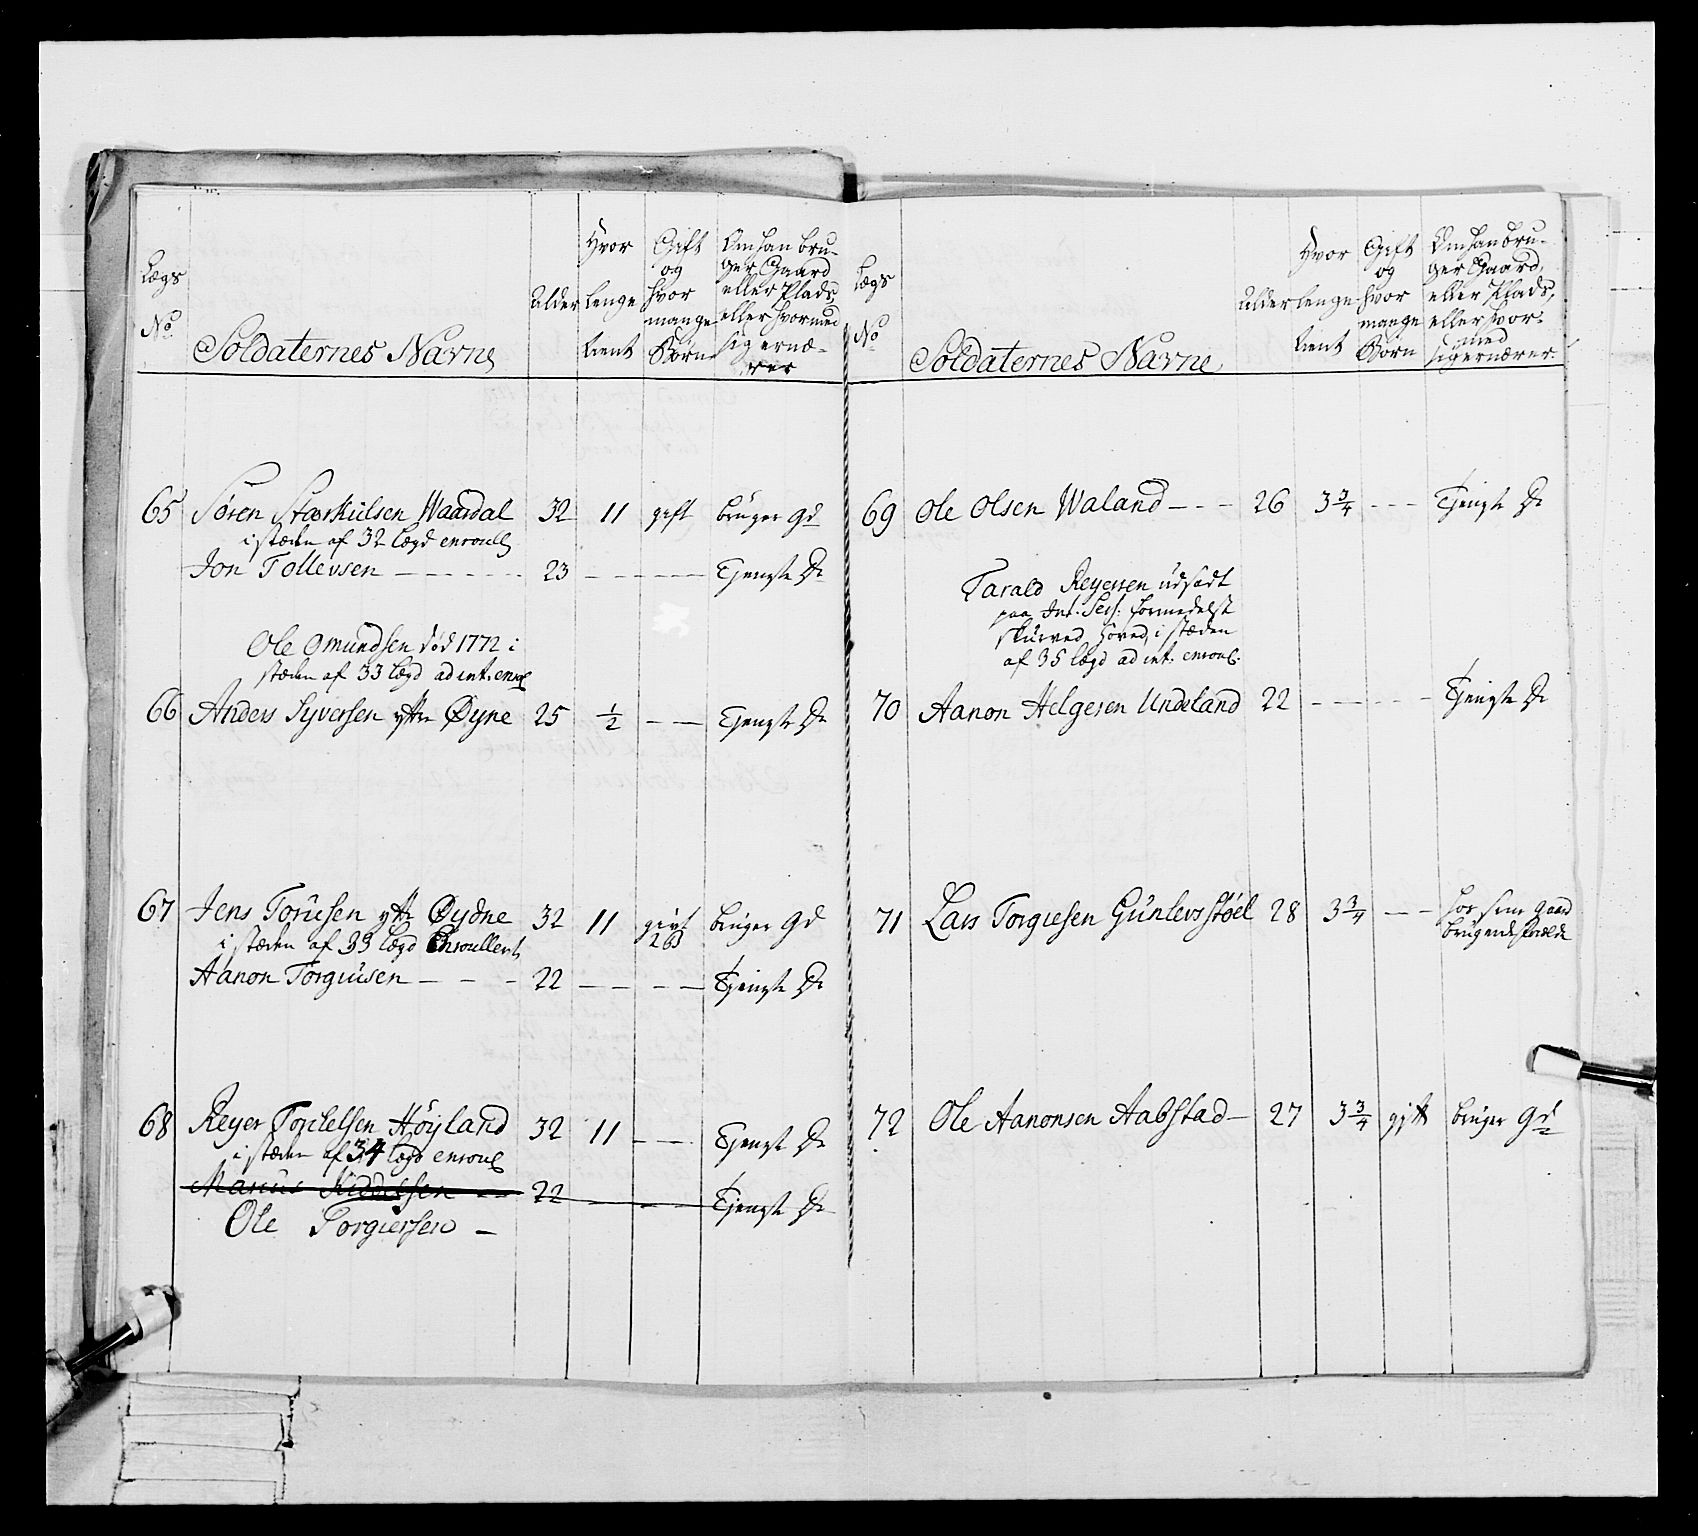 Lægs
No
Soldaternes Navne
Alder
Hvor
lenge
tient
Gift
og
hvor
mange
Børn
Om han bru-
ger Gaard
eller Plads,
eller hvormed
sig ernæ-
rer
65 Søren Stærkulsen Waardal 32 11 gift bruger Gd
i stæden af 32 lægd enroull
Jon Tollevsen - - - - - - 23 - - - - - Tjengste Dr
Ole Omundsen død 1772 i
stæden af 33 lægd ad int. enroul
66 Anders Syversen yttr Øyne 25 1/2 - - Tjengste Dr
67 Jens Toruesen yttr Øydne 32 11 givt 2 B bruger Gd
i stæden af 33 lægd Enroullert
Aanon Torguusen - - - - 22 - - - - - Tjengste Dr
68 Reyer Torkelsen Høyland 32 11 - - Tjengste Dr
i stæden af 34 lægd enroul
22 - - - Tjengste Dr
Ole Torgiersen -
Lægs
No
Soldaternes Navne
Alder
Hvor
lenge
tient
Gift
og
hvor
mange
Børn
Om han bru-
ger Gaard,
eller Plads,
eller hvor-
med
sig ernærer
69 Ole Olsen Waland - - - 26 3 3/4 - - - Tjengste Dr
Tarald Reyersen udsadt
paa Int. Sess: formedelst
skurved Hoved, i stæden
af 35 lægd ad int. enroul.
70 Aanon Helgesen Undeland 22 - - - - - Tjengste Dr
71 Lars Torgiesen Gunlevsstøel 28 3 3/4 - - hos sine gaard
brugende forældre
72 Ole Aanonsen Aabstad - 27 3 3/4 gift bruger Gd